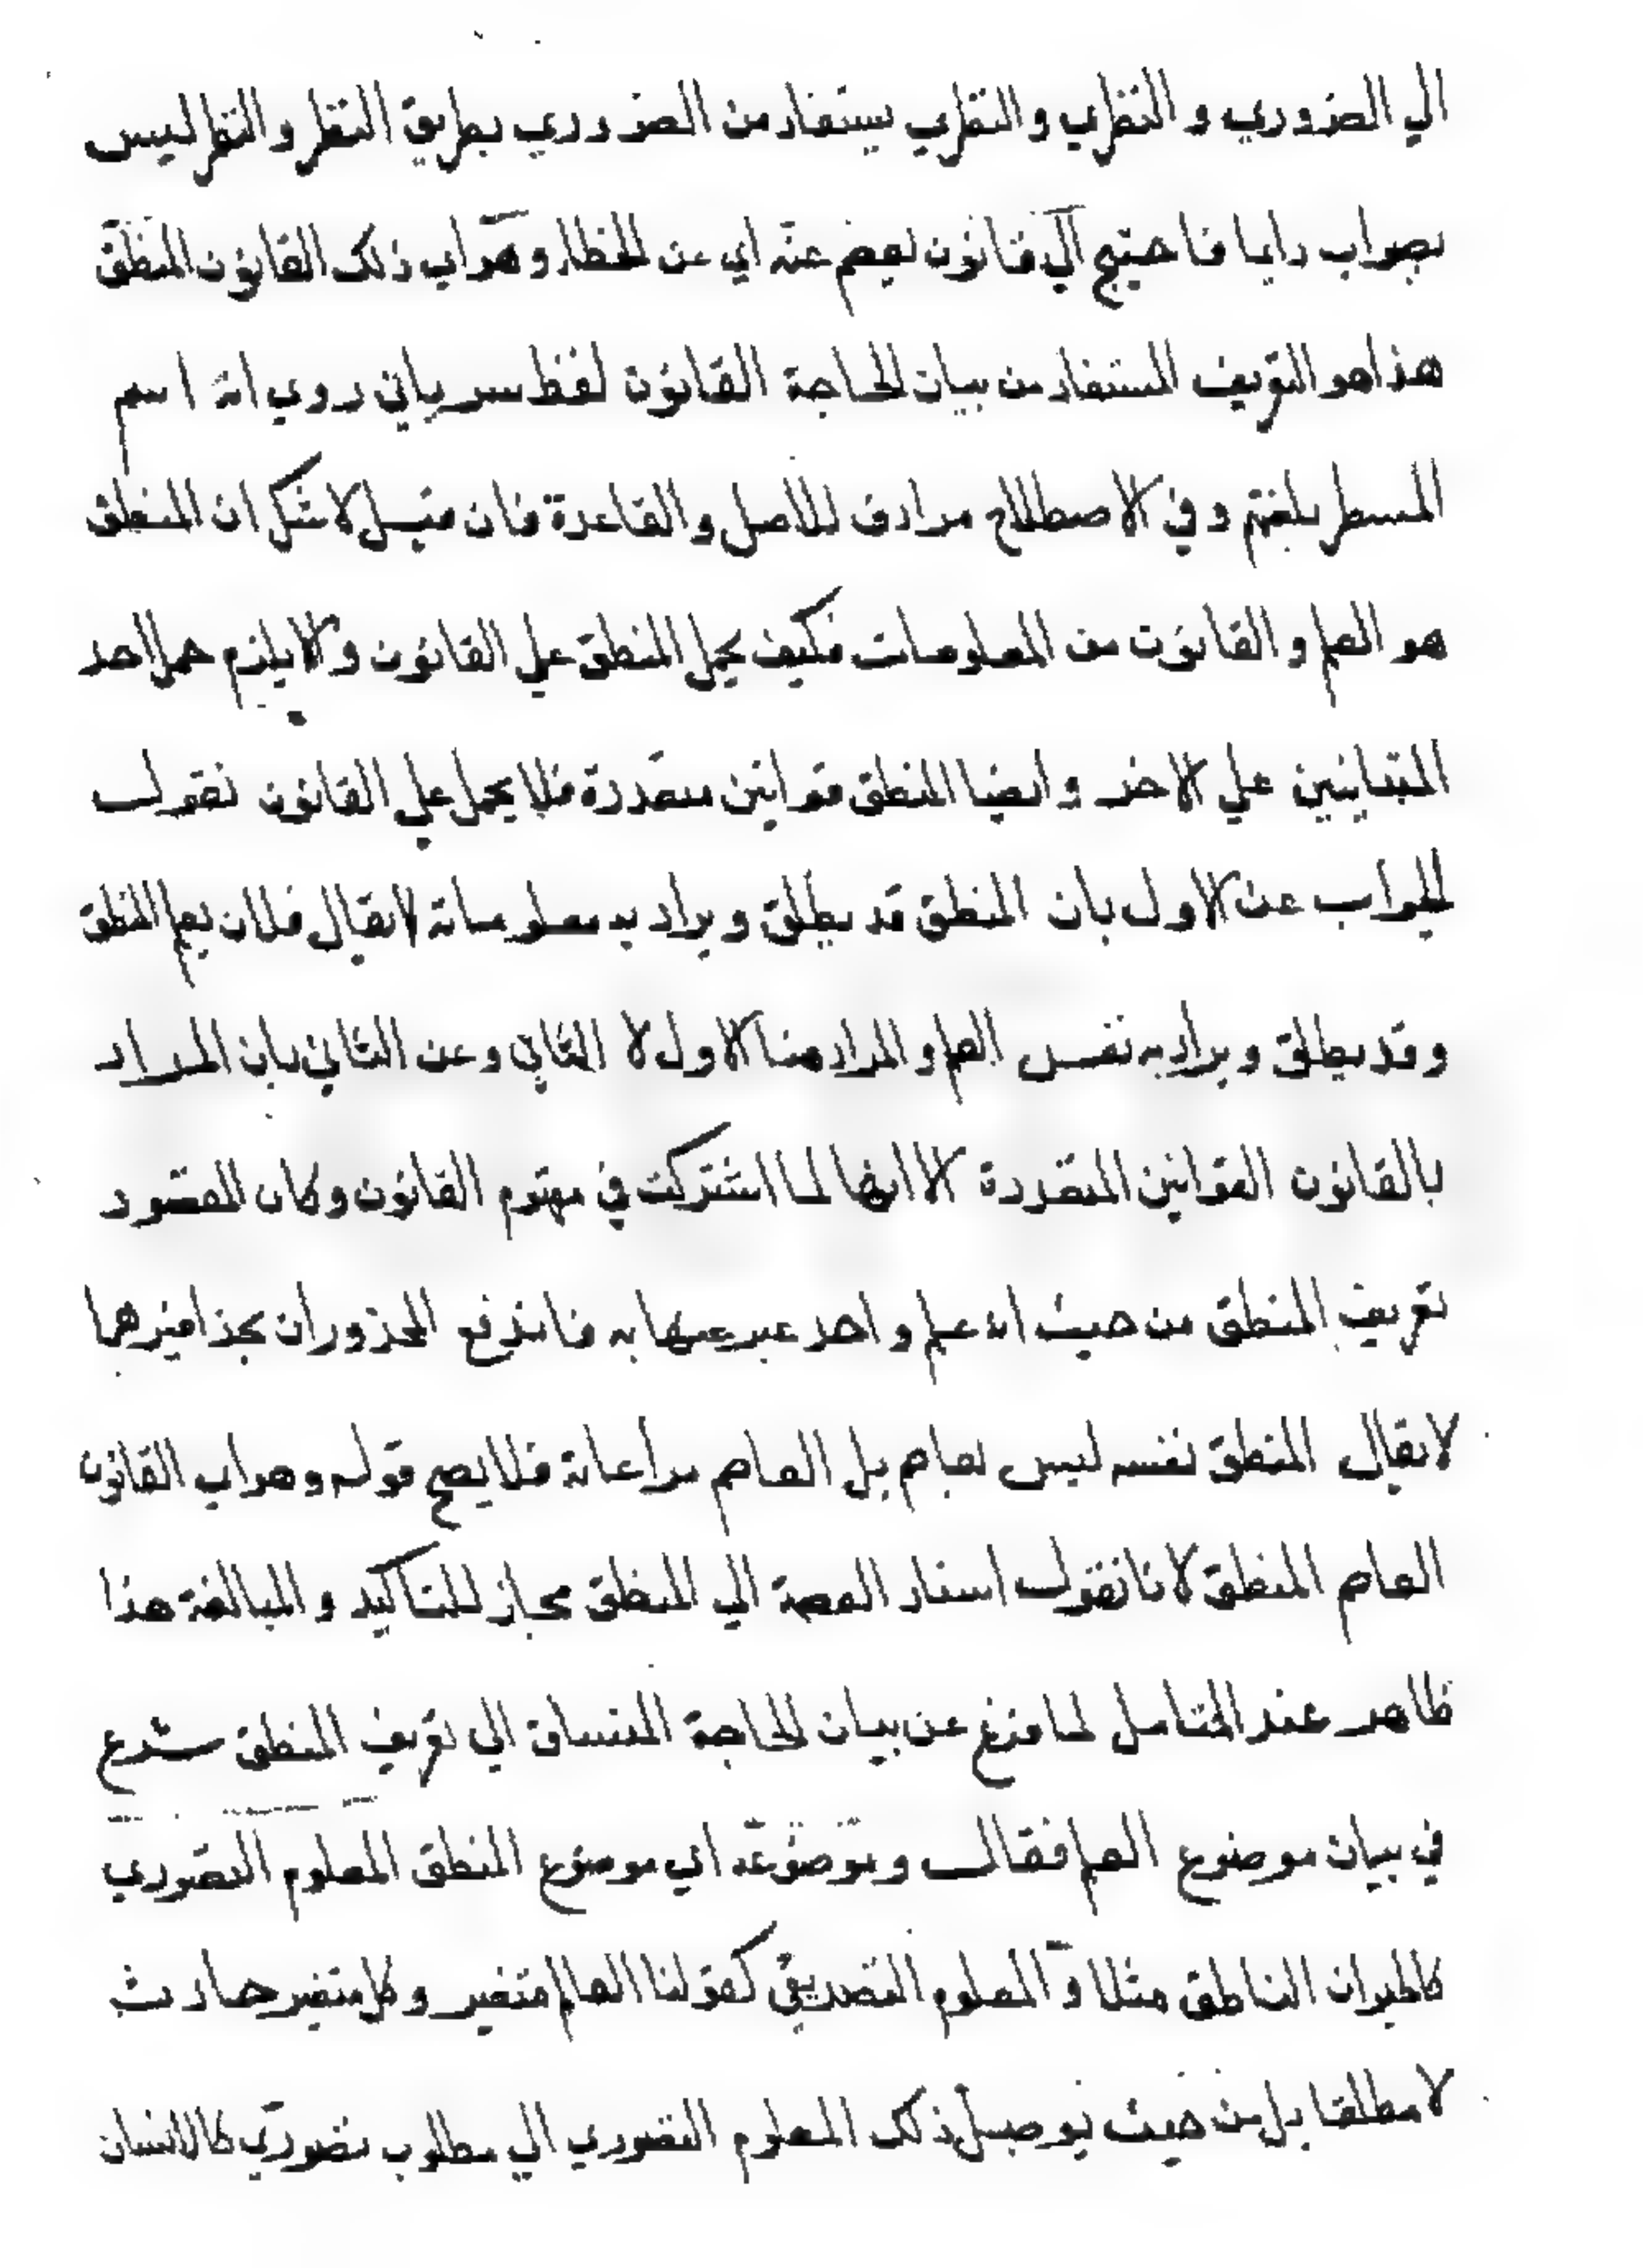 الي الضروري و النظري و النظري يستفاد من الضروري بطريق النظر و النظر ليس
بصواب دايما فاحتيج الي قانون يعصم عنه اي عن الخطاء و هو اي ذلك القانون المنطق
هذا هو التعريف المستفاد من بيان الحاجة القانون لفظ سرياني روي انه اسم
المسطر بلغتهم و في الاصطلاح مرادف للاصل و القاعدة فان قيل لا شك ان المنطق
هو العلم و القانون من المعلومات فكيف يحمل المنطق علي القانون و لا يلزم حمل احد
المتباينين علي الاخر و ايضا المنطق قوانين متعددة فلا يحمل علي القانون نقول
الجواب عن الاول بان المنطق قد يطلق و يراد به معلوماته لا يقال فلان يعلم المنطق
و قد يطلق و يراد به نفس العلم و المراد هنا الاول لا الثاني و عن الثاني بان المراد
بالقانون القوانين المتعددة الا انها لما اشتركت في مفهوم القانون و كان المقصود
تعريف المنطق من حيث انه علم واحد عبر عنها به فاندفع المحذوران بحذافيرهما
لا يقال المنطق نفسه ليس بعاصم بل العاصم مراعاته فلا يصح قوله و هو اي القانون
العاصم المنطق لانا نقول اسناد العصمة الي المنطق مجاز للتاكيد و المبالغة هذا
ظاهر عند المتامل لما فرغ عن بيان الحاجة المنساق الي تعريف المنطق شرع
في بيان موضوع العلم فقال و موضوعه اي موضوع المنطق المعلوم التصوري
كالحيوان الناطق مثلا و المعلوم التصديقي كقولنا العالم متغير و كل متغير حادث
لا مطلقا بل من حيث يوصل ذلك المعلوم التصوري الي مطلوب تصوري كالانسان